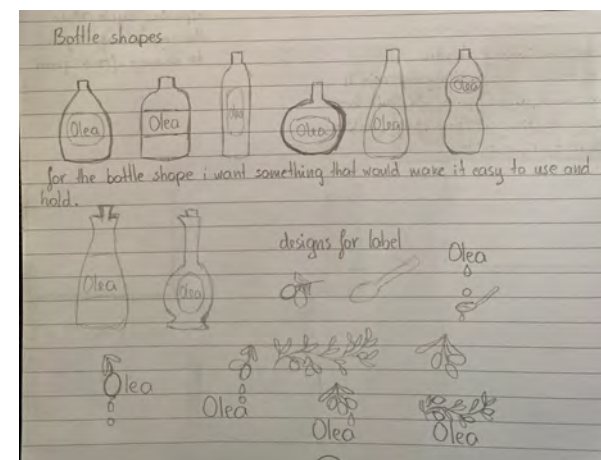 Bottle shapes
Olea Olea Olea Olea Olea Olea
for the bottle shape i want something that would make it easy to use and
hold.
designs for label
Olea
Olea Olea
Olea
Olea
Olea Olea